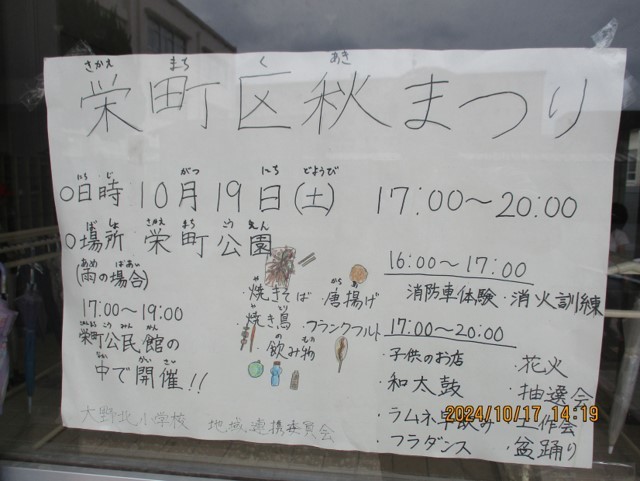 栄町区秋まつり
さかえ まち く あき
○日時 10月19日(土) 17:00～20:00
にち じ がつ にち どようび
○場所 栄町公園
ば しょ さかえ まち こう えん
(雨の場合)
あめ ばあい
17:00～19:00
栄町公民館の
中で開催!!
なか かい さい
・焼きそば ・唐揚げ
や から あ
・焼き鳥 ・フランクフルト
や とり
・飲み物
の もの
16:00～17:00
消防車体験・消火訓練
17:00～20:00
・子供のお店 ・花火
・和太鼓 ・抽選会
・ラムネ早飲み ・工作会
・フラダンス ・盆踊り
大野北小学校 地域連携委員会
2024/10/17 14:19